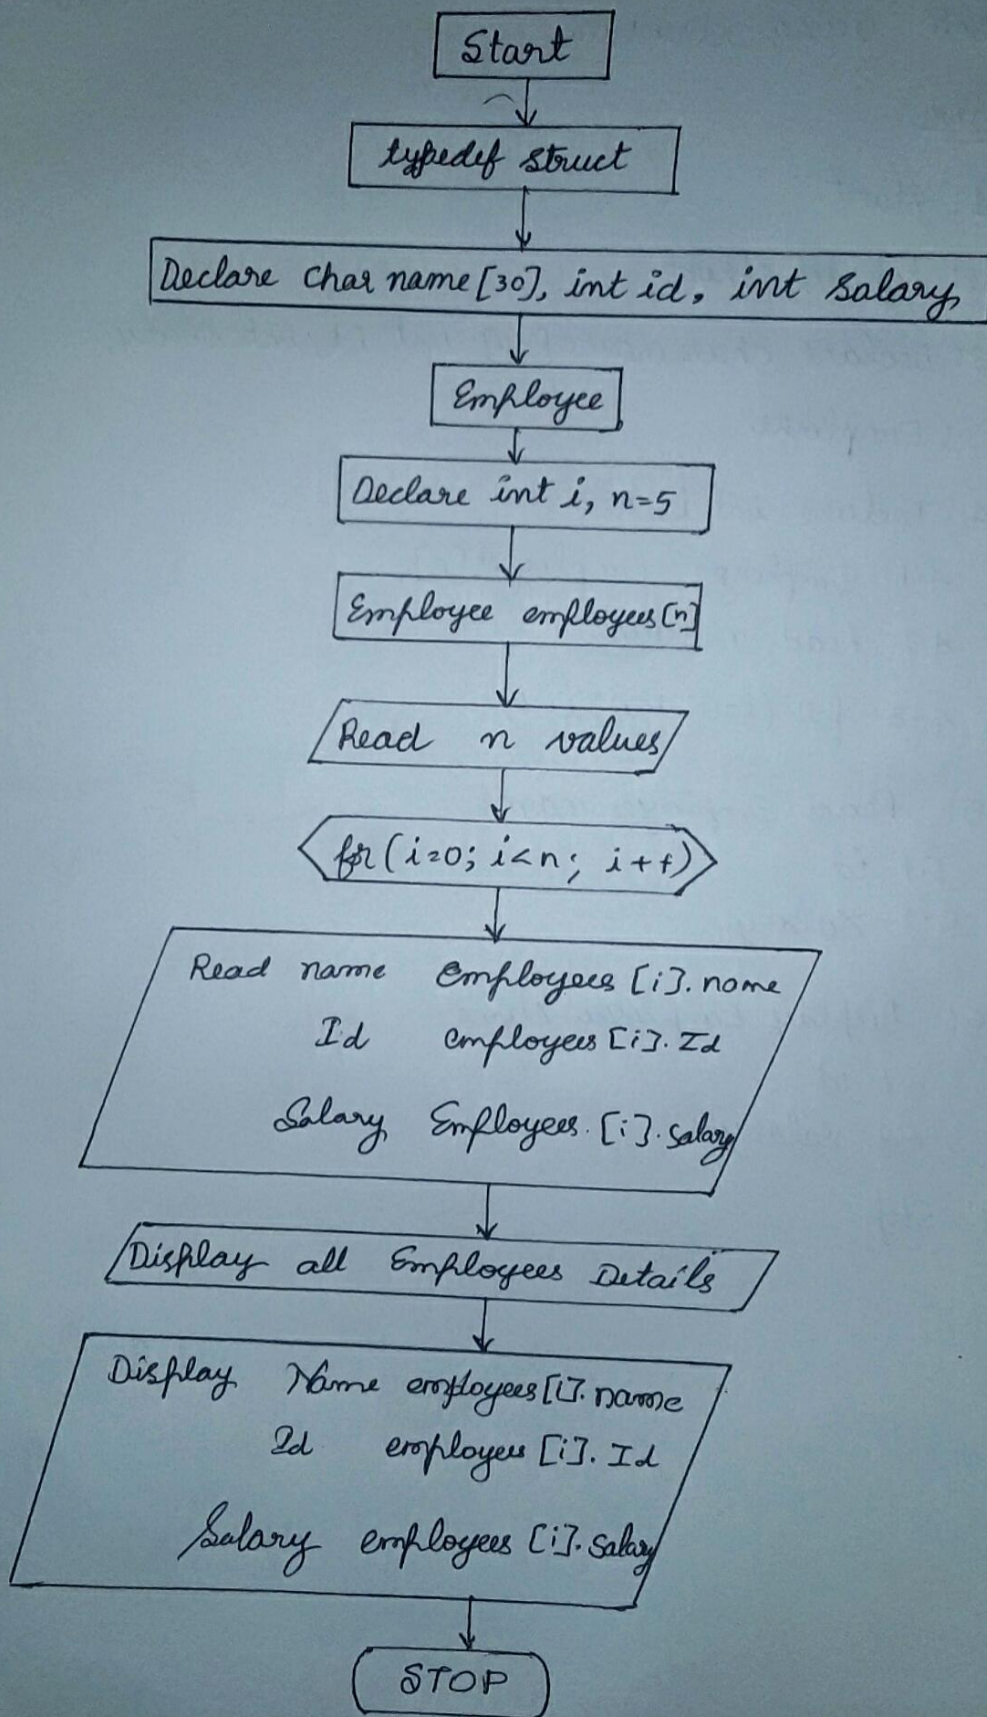 Start
typedef struct
Declare Char name[30], int id, int Salary
Employee
Declare int i, n=5
Employee employees[n]
Read n values
for(i=0; i<n; i++)
Read name employees[i].name
Id employees[i].Id
Salary Employees.[i].salary
Display all Employees Details
Display Name employees[i].name
Id employees[i].Id
Salary employees[i].salary
STOP